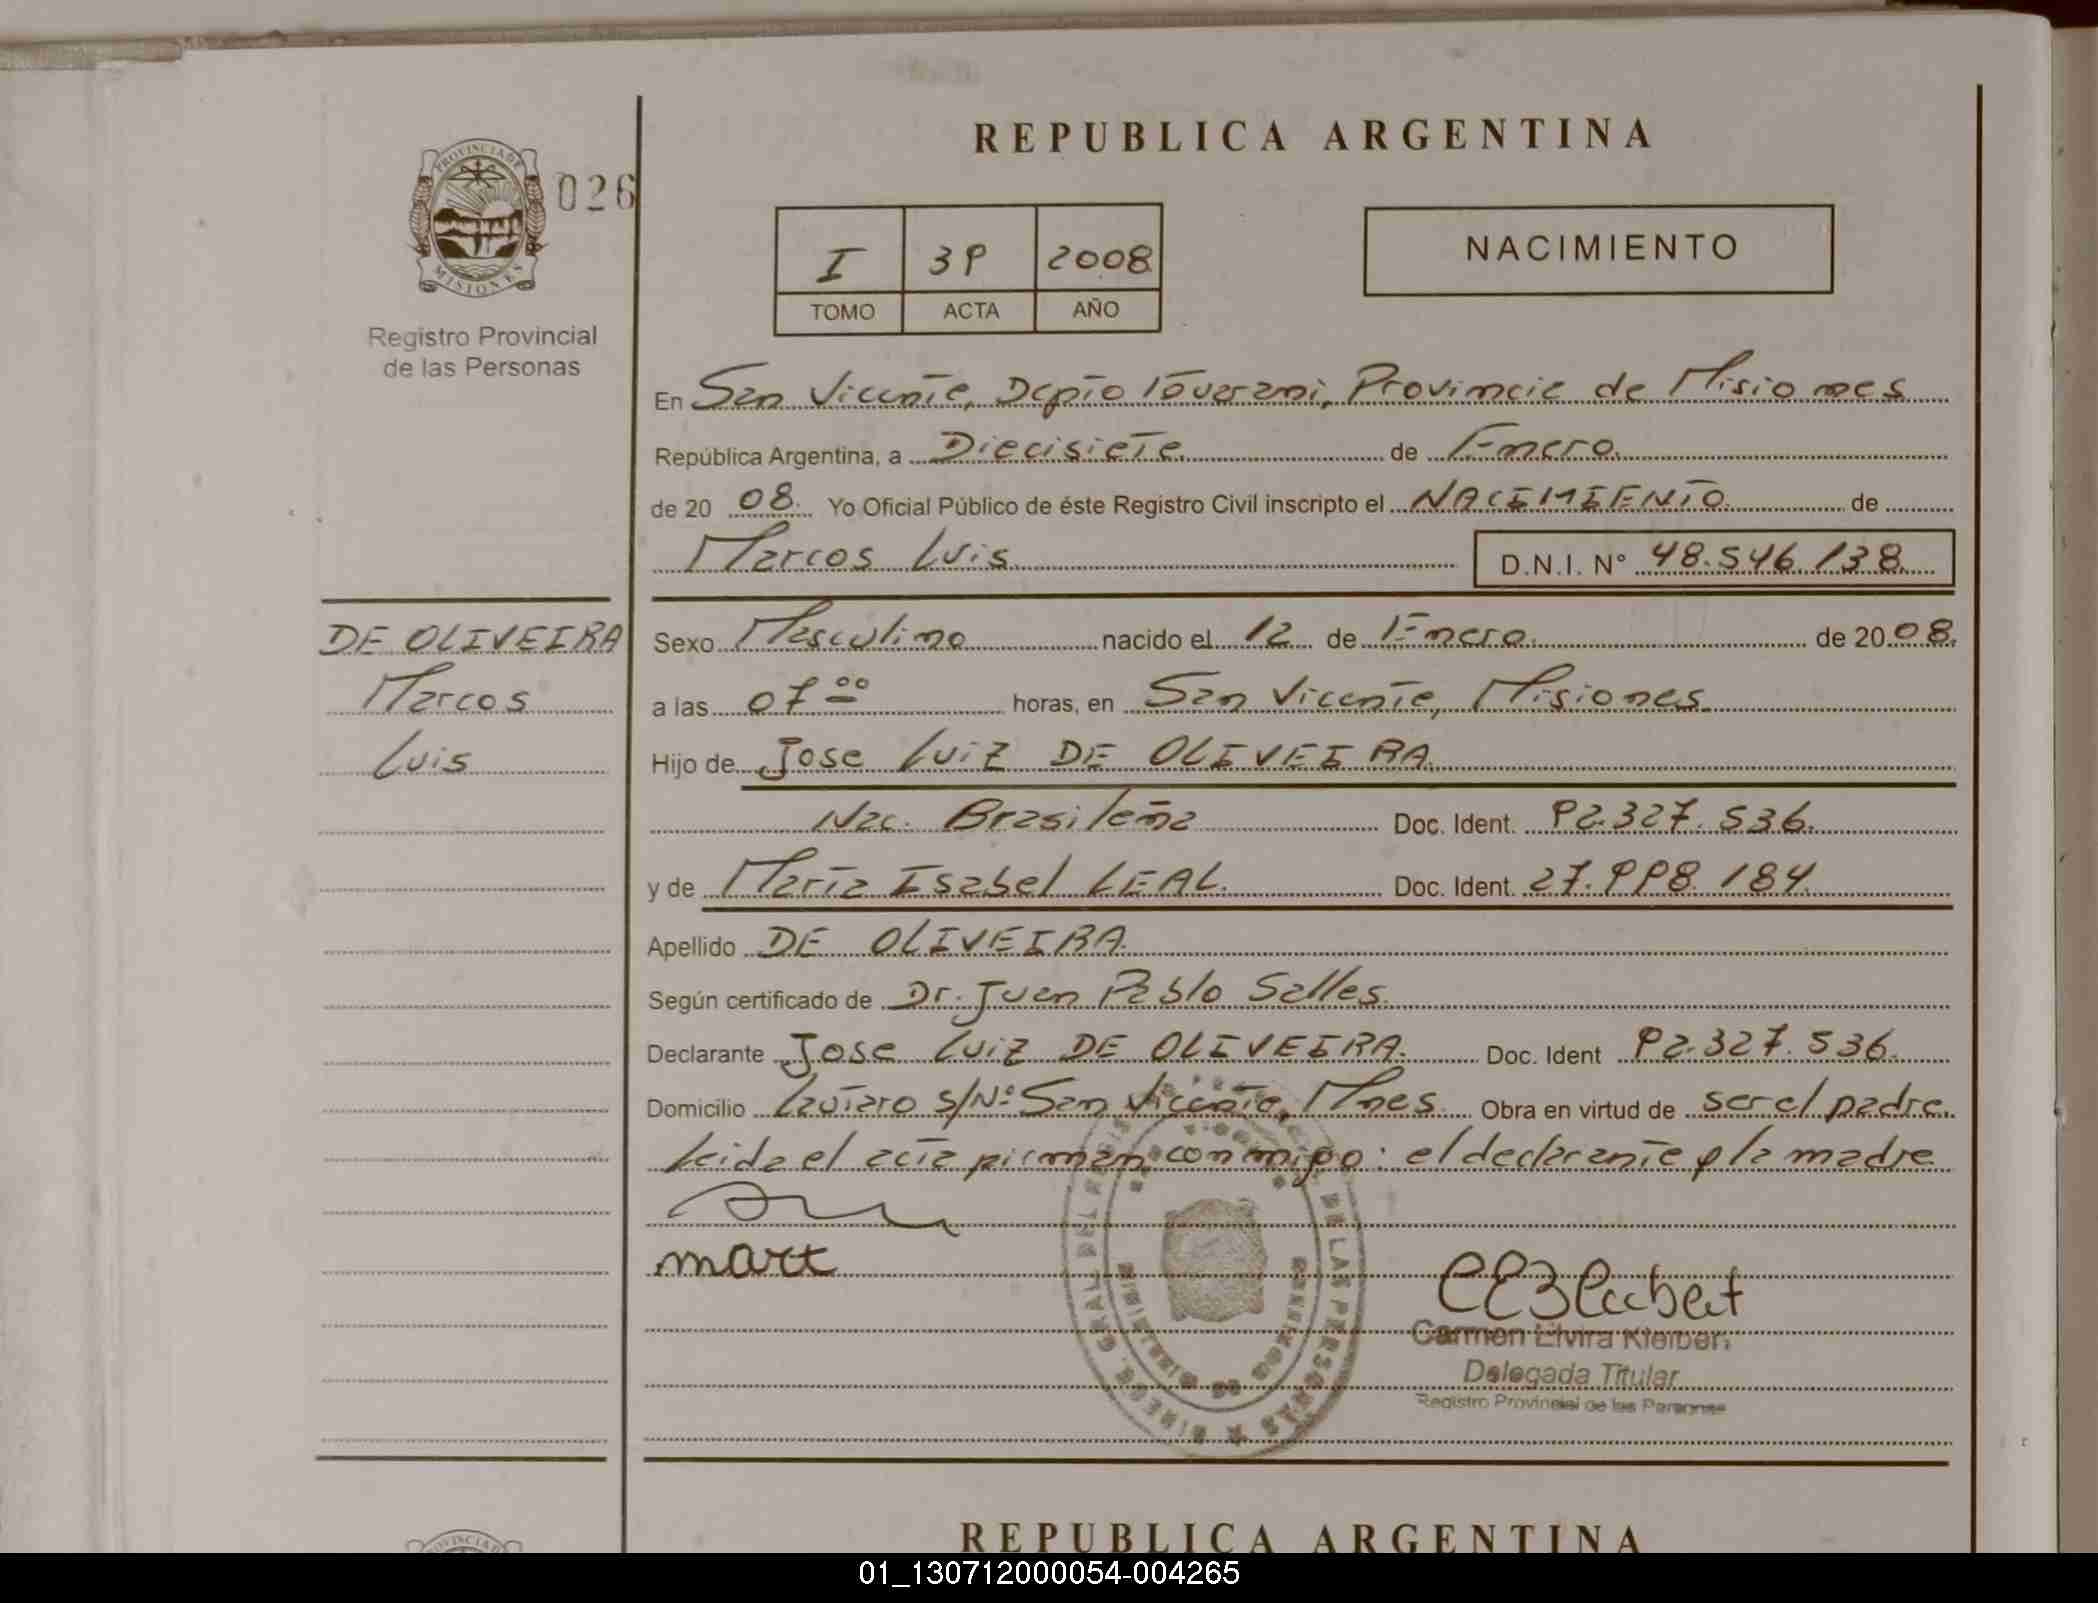 REPUBLICA ARGENTINA
PROVINCIA DE
MISIONES
026
Registro Provincial
de las Personas
I 39 2008
TOMO ACTA AÑO
NACIMIENTO
En San Vicente, Depto Guarani, Provincia de Misiones
República Argentina, a Diecisiete de Enero
de 2008. Yo Oficial Público de éste Registro Civil inscripto el NACIMIENTO de
Marcos Luis D.N.I. N° 48.546.138
DE OLIVEIRA
Marcos
Luis
Sexo Masculino nacido el 12 de Enero de 2008.
a las 07 00 horas, en San Vicente, Misiones.
Hijo de Jose Luiz DE OLIVEIRA.
Nac. Brasileña Doc. Ident. 92.327.536.
y de María Isabel LEAL. Doc. Ident. 27.998.184.
Apellido DE OLIVEIRA.
Según certificado de Dr. Juan Pablo Salles.
Declarante Jose Luiz DE OLIVEIRA. Doc. Ident 92.327.536.
Domicilio s/N° San Vicente, Mnes. Obra en virtud de ser el padre.
Leida el acta firman conmigo: el declarante y la madre
Carmen Elvira Kleibert
Delegada Titular
Registro Provincial de las Personas
REPUBLICA ARGENTINA
01_130712000054-004265